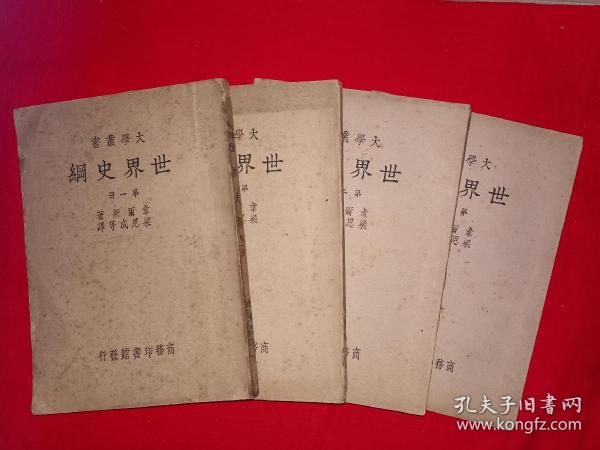 大學叢書
世界史綱
第一册
韋爾斯著
梁思成等譯
商務印書館發行
大學
世界
第
韋
梁
商
大學叢
世界史
第一
韋爾
梁思
商務
大學
世界
第
韋爾
梁思
商務
孔夫子旧书网
www.kongfz.com